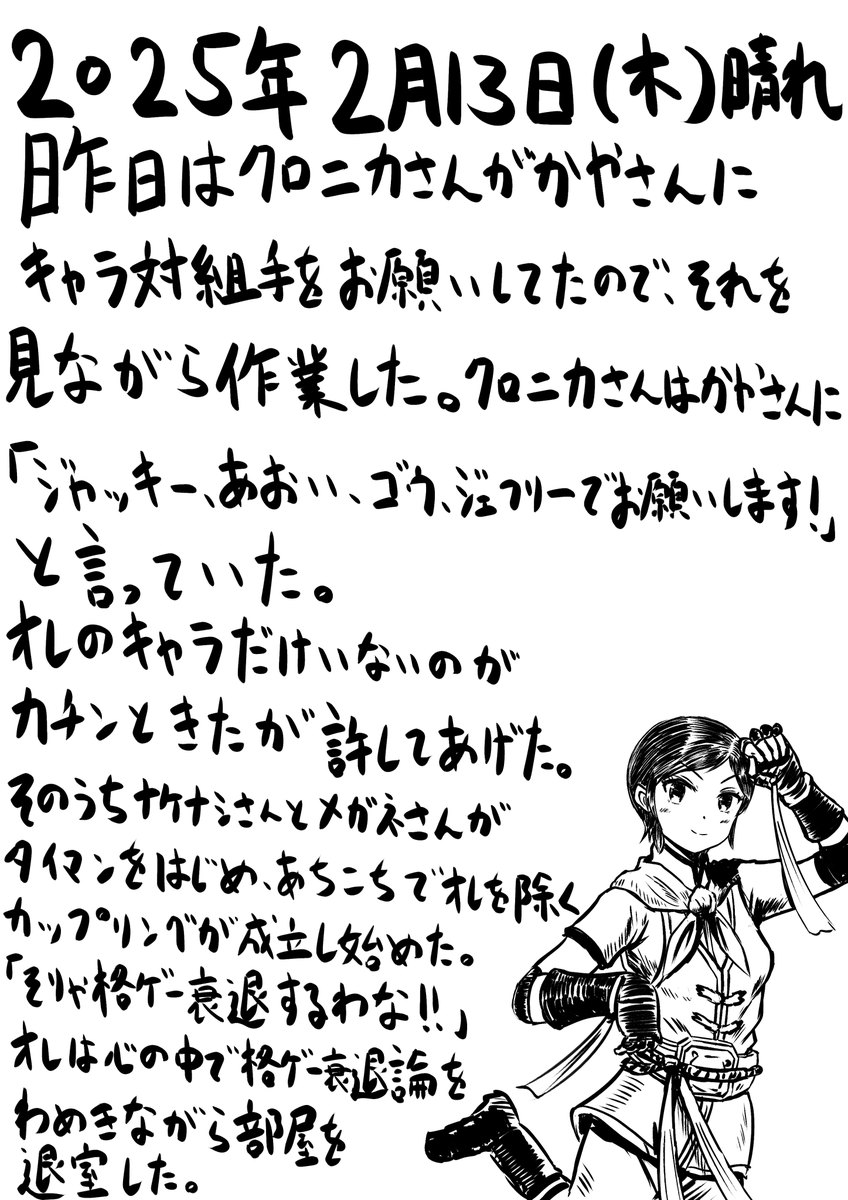 2025年2月13日(木)晴れ
昨日はクロニカさんがかやさんに
キャラ対組手をお願いしてたので、それを
見ながら作業した。クロニカさんはかやさんに
「ジャッキー、あおい、ゴウ、ジェフリーでお願いします!」
と言っていた。
オレのキャラだけいないのが
カチンときたが許してあげた。
そのうちナケナシさんとメガネさんが
タイマンをはじめ、あちこちでオレを除く
カップリングが成立し始めた。
「そりゃ格ゲー衰退するわな!!」
オレは心の中で格ゲー衰退論を
わめきながら部屋を
退室した。